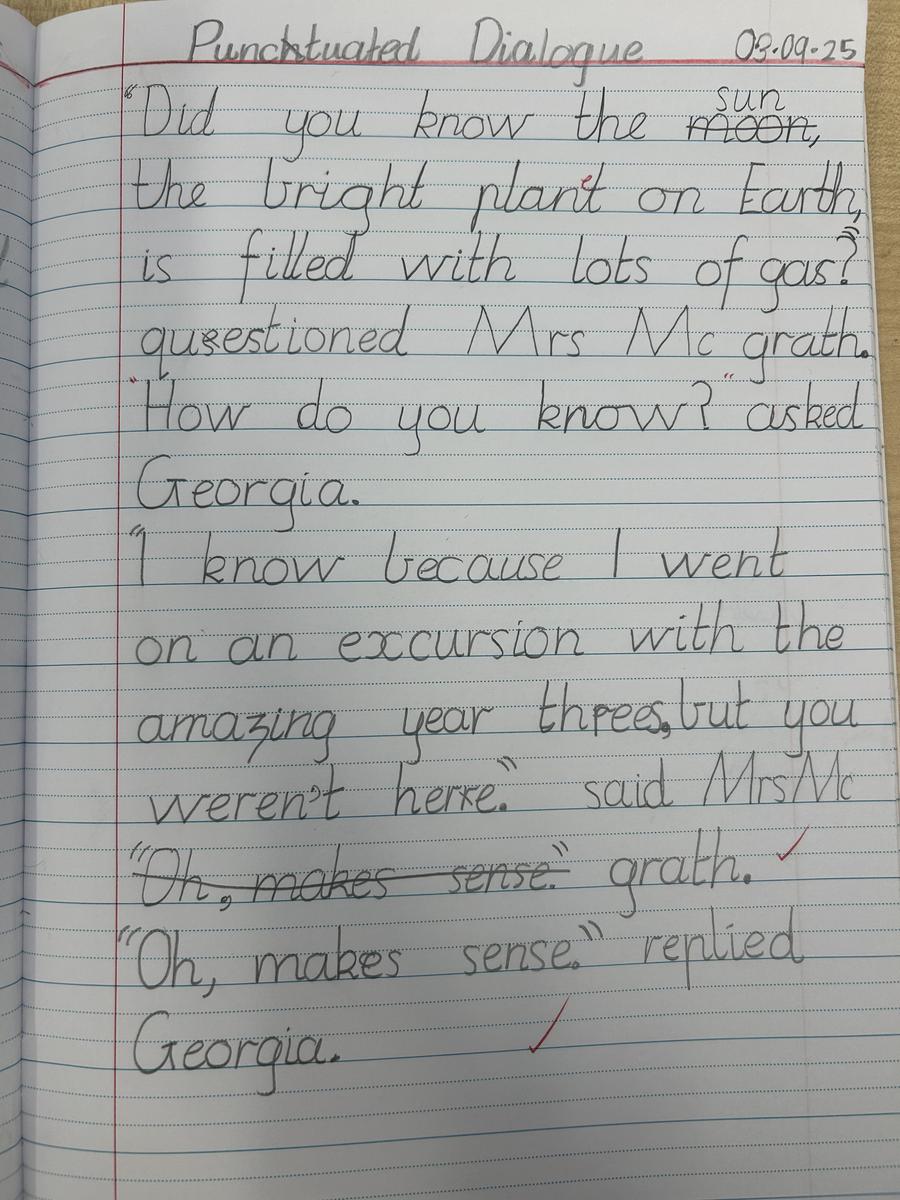 Punchtuated Dialogue 03.09.25
sun
"Did you know the moon,
the bright planet on Earth,
is filled with lots of gas?"
qusestioned Mrs Mc grath.
"How do you know?" asked
Georgia.
"I know because I went
on an excursion with the
amazing year threes, but you
weren't here." said Mrs Mc
"Oh, makes sense." grath.
"Oh, makes sense." replied
Georgia.